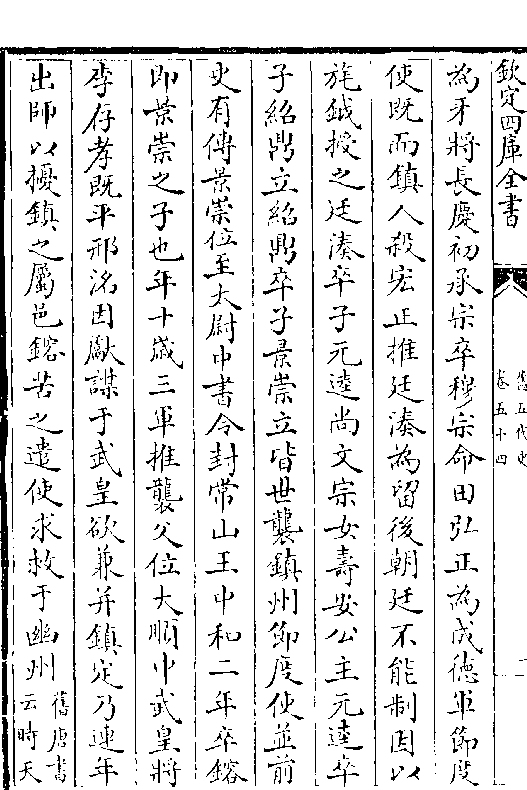 欽定四庫全書
舊五代史
卷五十四
一
為牙將長慶初承宗卒穆宗命田弘正為成德軍節度
使既而鎮人殺宏正推廷湊為留後朝廷不能制因以
旄鉞授之廷湊卒子元逵尚文宗女壽安公主元逵卒
子紹鼎立紹鼎卒子景崇立皆世襲鎮州節度使並前
史有傳景崇位至太尉中書令封常山王中和二年卒鎔
即景崇之子也年十歲三軍推襲父位大順中武皇將
李存孝既平邢洺因獻謀于武皇欲兼并鎮定乃連年
出師以擾鎮之屬邑鎔苦之遣使求救于幽州
舊唐書
云時天